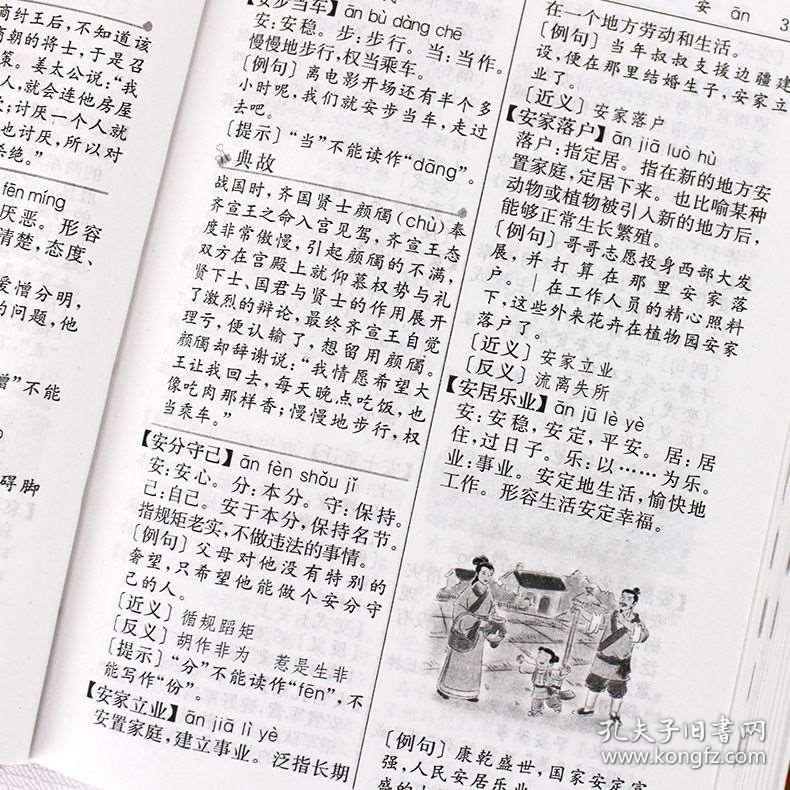 商纣王后，不知道该
商朝的将士，于是召
策。姜太公说：“我
人，就会连他房屋
；讨厌一个人就
也讨厌，所以对
杀绝。”
fēn míng
厌恶。形容
清楚，态度、
爱憎分明，
的问题，他
憎”不能
碍脚
【安步当车】ān bù dàng chē
安：安稳。步：步行。当：当作。
慢慢地步行，权当乘车。
〔例句〕离电影开场还有半个多
小时呢，我们就安步当车，走过
去吧。
〔提示〕“当”不能读作“dāng”。
典故
战国时，齐国贤士颜斶(chù)奉
齐宣王之命入宫见驾，齐宣王态
度非常傲慢，引起颜斶的不满，
双方在宫殿上就仰慕权势与礼
贤下士、国君与贤士的作用展开
了激烈的辩论，最终齐宣王自觉
理亏，便认输了，想留用颜斶。
颜斶却辞谢说：“我情愿希望大
王让我回去，每天晚点吃饭，也
像吃肉那样香；慢慢地步行，权
当乘车。”
【安分守己】ān fèn shǒu jǐ
安：安心。分：本分。守：保持。
己：自己。安于本分，保持名节。
指规矩老实，不做违法的事情。
〔例句〕父母对他没有特别的
奢望，只希望他能做个安分守
己的人。
〔近义〕循规蹈矩
〔反义〕胡作非为 惹是生非
〔提示〕“分”不能读作“fēn”，不
能写作“份”。
【安家立业】ān jiā lì yè
安置家庭，建立事业。泛指长期
安 ān 3
在一个地方劳动和生活。
〔例句〕当年叔叔支援边疆建
设，便在那里结婚生子，安家立
业了。
〔近义〕安家落户
【安家落户】ān jiā luò hù
落户：指定居。指在新的地方安
置家庭，定居下来。也比喻某种
动物或植物被引入新的地方后，
能够正常生长繁殖。
〔例句〕哥哥志愿投身西部大发
展，并打算在那里安家落
户。｜在工作人员的精心照料
下，这些外来花卉在植物园安家
落户了。
〔近义〕安家立业
〔反义〕流离失所
【安居乐业】ān jū lè yè
安：安稳，安定，平安。居：居
住，过日子。乐：以……为乐。
业：事业。安定地生活，愉快地
工作。形容生活安定幸福。
〔例句〕康乾盛世，国家安定富
强，人民安居乐业
孔夫子旧书网
www.kongfz.com